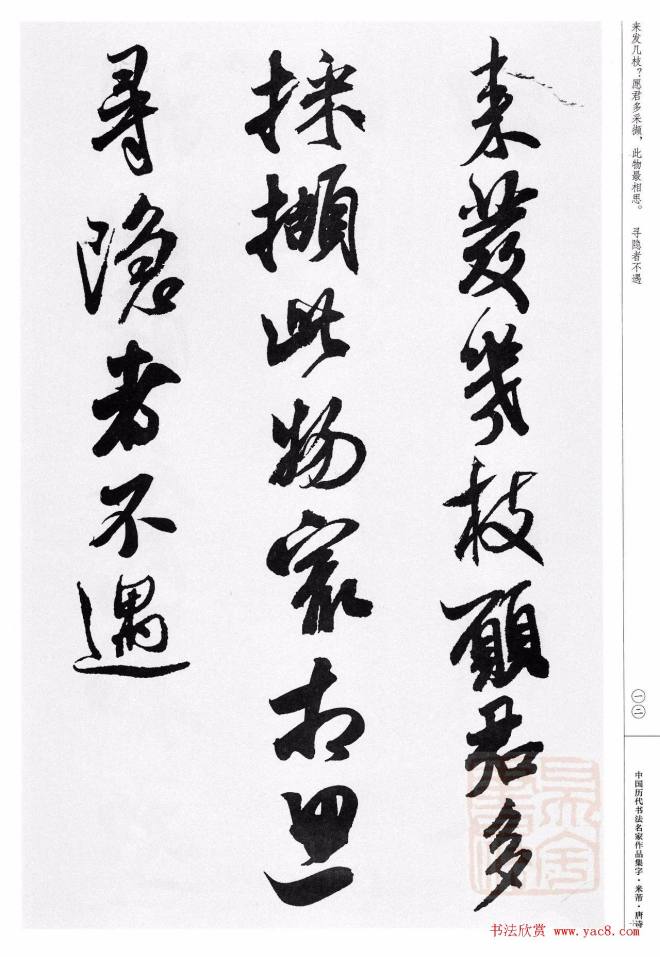 来發幾枝願君多
採擷此物寂相思
尋隐者不遇
来发几枝？愿君多采撷，此物最相思。 寻隐者不遇
一二
中国历代书法名家作品集字·米芾·唐诗
书法欣赏 www.yac8.com